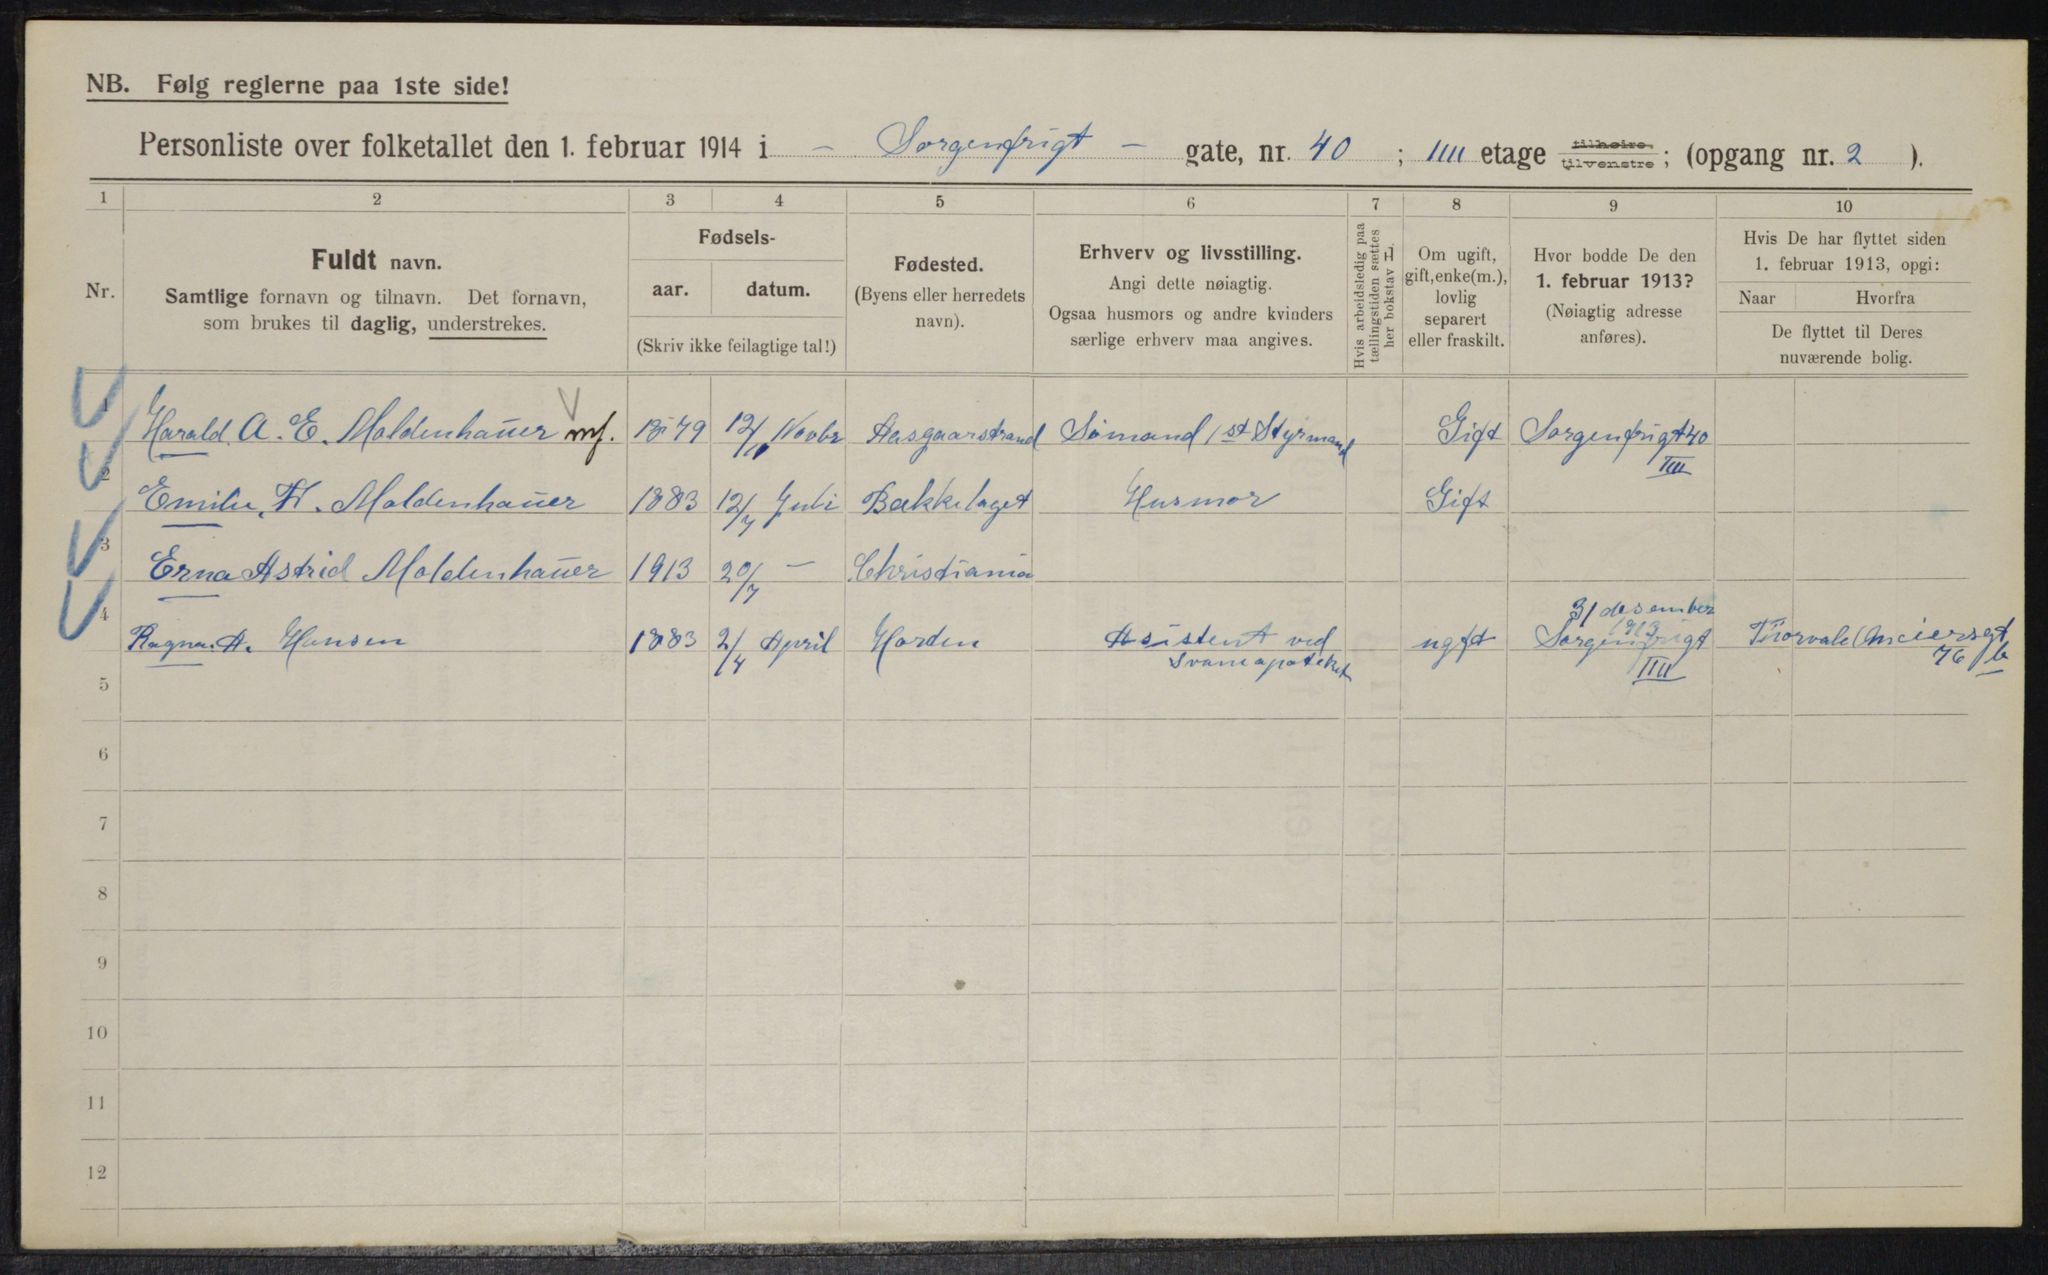 NB. Følg reglerne paa 1ste side!
Personliste over folketallet den 1. februar 1914 i - Sorgenfrigt - gate, nr. 40 ; IIII etage tilhøire tilvenstre ; (opgang nr. 2 ).
1 2 3 4 5 6 7 8 9 10
Nr.
Fuldt navn.
Samtlige fornavn og tilnavn. Det fornavn,
som brukes til daglig, understrekes.
Fødsels-
aar. datum.
(Skriv ikke feilagtige tal!)
Fødested.
(Byens eller herredets
navn).
Erhverv og livsstilling.
Angi dette nøiagtig.
Ogsaa husmors og andre kvinders
særlige erhverv maa angives.
Hvis arbeidsledig paa
tællingstiden sættes
her bokstav L.
Om ugift,
gift, enke(m.),
lovlig
separert
eller fraskilt.
Hvor bodde De den
1. februar 1913?
(Nøiagtig adresse
anføres).
Hvis De har flyttet siden
1. februar 1913, opgi:
Naar Hvorfra
De flyttet til Deres
nuværende bolig.
1 Harald A. E. Moldenhauer mf. 1879 12/11 Novbr Aasgaarstrand Sømand 1st Styrmand Gift Sorgenfrigt 40
IIII
2 Emilie H. Moldenhauer 1883 12/7 Juli Bækkelaget Husmor Gift
3 Erna Astrid Moldenhauer 1913 20/7 — Christiania
31 desember
1913
4 Ragna A. Hansen 1883 2/4 April Horten Asistent ved ugft Sorgenfrigt Thorvald Meiersgt
Svaneapoteket IIII 76 b
5
6
7
8
9
10
11
12